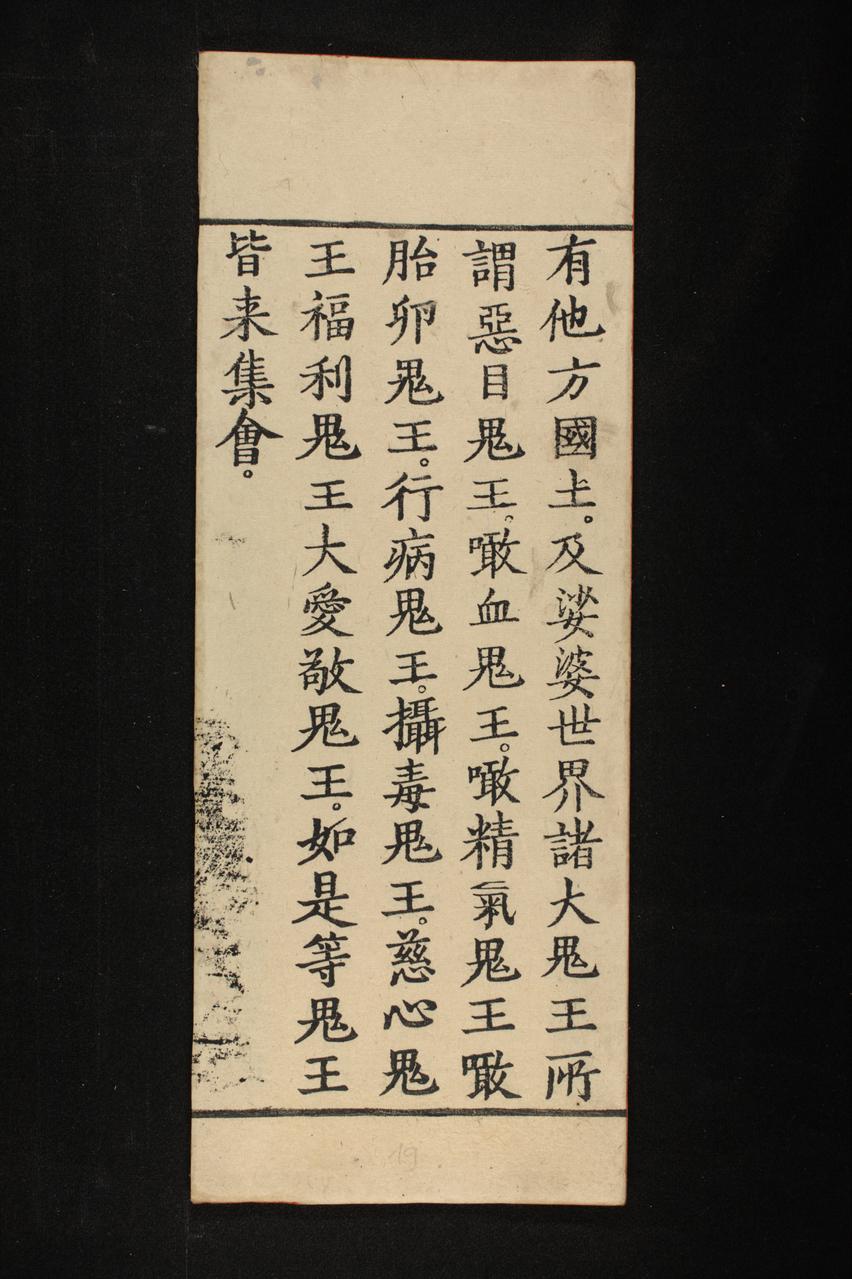 有他方國土。及娑婆世界諸大鬼王所
謂惡目鬼王。噉血鬼王。噉精氣鬼王噉
胎卵鬼王。行病鬼王。攝毒鬼王。慈心鬼
王福利鬼王大愛敬鬼王。如是等鬼王
皆来集會。
19